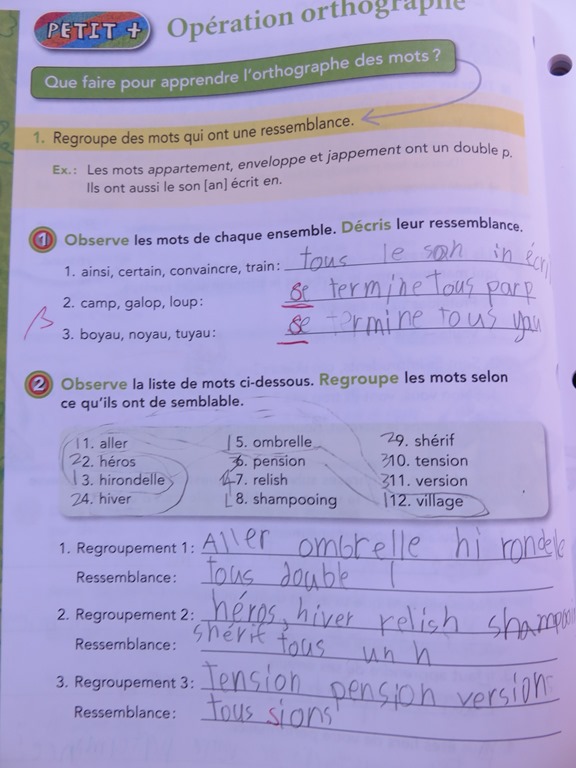 PETIT +
Opération orthographe
Que faire pour apprendre l'orthographe des mots ?
1. Regroupe des mots qui ont une ressemblance.
Ex.: Les mots appartement, enveloppe et jappement ont un double p.
Ils ont aussi le son [an] écrit en.
1 Observe les mots de chaque ensemble. Décris leur ressemblance.
1. ainsi, certain, convaincre, train: tous le son in écri
2. camp, galop, loup: se termine tous par p
3. boyau, noyau, tuyau: se termine tous yau
2 Observe la liste de mots ci-dessous. Regroupe les mots selon
ce qu'ils ont de semblable.
1 1. aller 1 5. ombrelle 2 9. shérif
2 2. héros 3 6. pension 3 10. tension
1 3. hirondelle 7. relish 3 11. version
2 4. hiver 8. shampooing 1 12. village
1. Regroupement 1: Aller ombrelle hirondele
Ressemblance: tous double l
2. Regroupement 2: héros, hiver relish shampooi
Ressemblance: shérif tous un h
3. Regroupement 3: Tension pension version
Ressemblance: tous sions